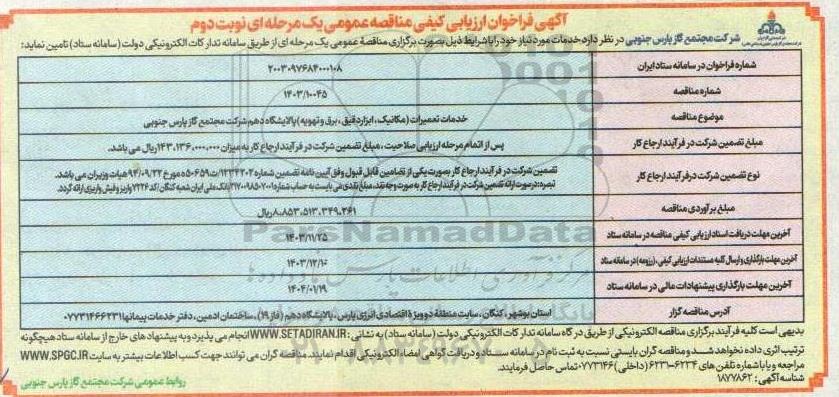 آگهی فراخوان ارزیابی کیفی مناقصه عمومی یک مرحله ای نوبت دوم
شرکت مجتمع گاز پارس جنوبی در نظر دارد خدمات مورد نیاز خود را با شرایط ذیل بصورت برگزاری مناقصه عمومی یک مرحله ای از طریق سامانه تدارکات الکترونیکی دولت (سامانه ستاد) تامین نماید:
شماره فراخوان در سامانه ستاد ایران ۲۰۰۳۰۹۷۶۸۴۰۰۰۱۰۸
شماره مناقصه ۱۴۰۳/۱۰۰۴۵
موضوع مناقصه خدمات تعمیرات (مکانیک، ابزاردقیق، برق و تهویه) پالایشگاه دهم شرکت مجتمع گاز پارس جنوبی
مبلغ تضمین شرکت در فرآیند ارجاع کار پس از اتمام مرحله ارزیابی صلاحیت، مبلغ تضمین شرکت در فرآیند ارجاع کار به میزان ۱۴۳,۱۳۶,۰۰۰,۰۰۰ ریال می باشد.
نوع تضمین شرکت در فرآیند ارجاع کار تضمین شرکت در فرآیند ارجاع کار بصورت یکی از تضامین قابل قبول وفق آیین نامه تضمین شماره ۱۲۳۴۰۲/ت۵۰۶۵۹ه مورخ ۹۴/۰۹/۲۲ هیات وزیران می باشد.
تبصره: در صورت ارائه تضمین شرکت در فرآیند ارجاع کار به صورت وجه نقد، مبلغ نقدی می بایست به حساب شماره بانک ملی ایران شعبه کنگان /کد ۷۲۲۶ واریز و فیش واریزی ارائه گردد.
مبلغ برآوردی مناقصه ۸,۸۵۳,۵۱۳,۳۴۹,۳۶۱ ریال
آخرین مهلت دریافت اسناد ارزیابی کیفی مناقصه در سامانه ستاد ۱۴۰۳/۱۱/۲۵
آخرین مهلت بارگذاری و ارسال کلیه مستندات ارزیابی کیفی، (رزومه) در سامانه ستاد ۱۴۰۳/۱۲/۱۰
آخرین مهلت بارگذاری پیشنهادات مالی در سامانه ستاد ۱۴۰۴/۰۱/۱۹
آدرس مناقصه گزار استان بوشهر، کنگان، سایت منطقه دو ویژه اقتصادی انرژی پارس، پالایشگاه دهم (فاز ۱۹)، ساختمان ادمین، دفتر خدمات پیمانها ۰۷۷۳۱۴۶۶۲۳۱
بدیهی است کلیه فرآیند برگزاری مناقصه الکترونیکی از طریق درگاه سامانه تدارکات الکترونیکی دولت (سامانه ستاد) به نشانی: WWW.SETADIRAN.IR انجام می پذیرد و به پیشنهاد های خارج از سامانه ستاد هیچگونه
ترتیب اثری داده نخواهد شد و مناقصه گران بایستی نسبت به ثبت نام در سامانه ستاد و دریافت گواهی امضاء الکترونیکی اقدام نمایند. مناقصه گران می توانند جهت کسب اطلاعات بیشتر به سایت WWW.SPGC.IR
مراجعه و یا با شماره تلفن های ۶۲۳۴-۶۲۳۱ (داخلی) ۰۷۷۳۱۴۶ تماس حاصل فرمایند.
شناسه آگهی: ۱۸۷۷۸۶۲
روابط عمومی شرکت مجتمع گاز پارس جنوبی
ParsNamadData